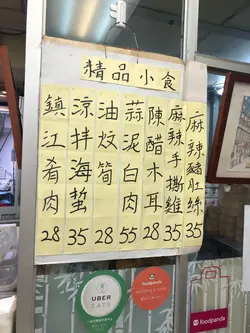 精品小食
鎮江肴肉 28
涼拌海蜇 35
油炆筍 28
蒜泥白肉 55
陳醋木耳 28
麻辣手撕雞 35
麻辣豬肚絲 35
UBER
EATS
foodpanda
foodpanda